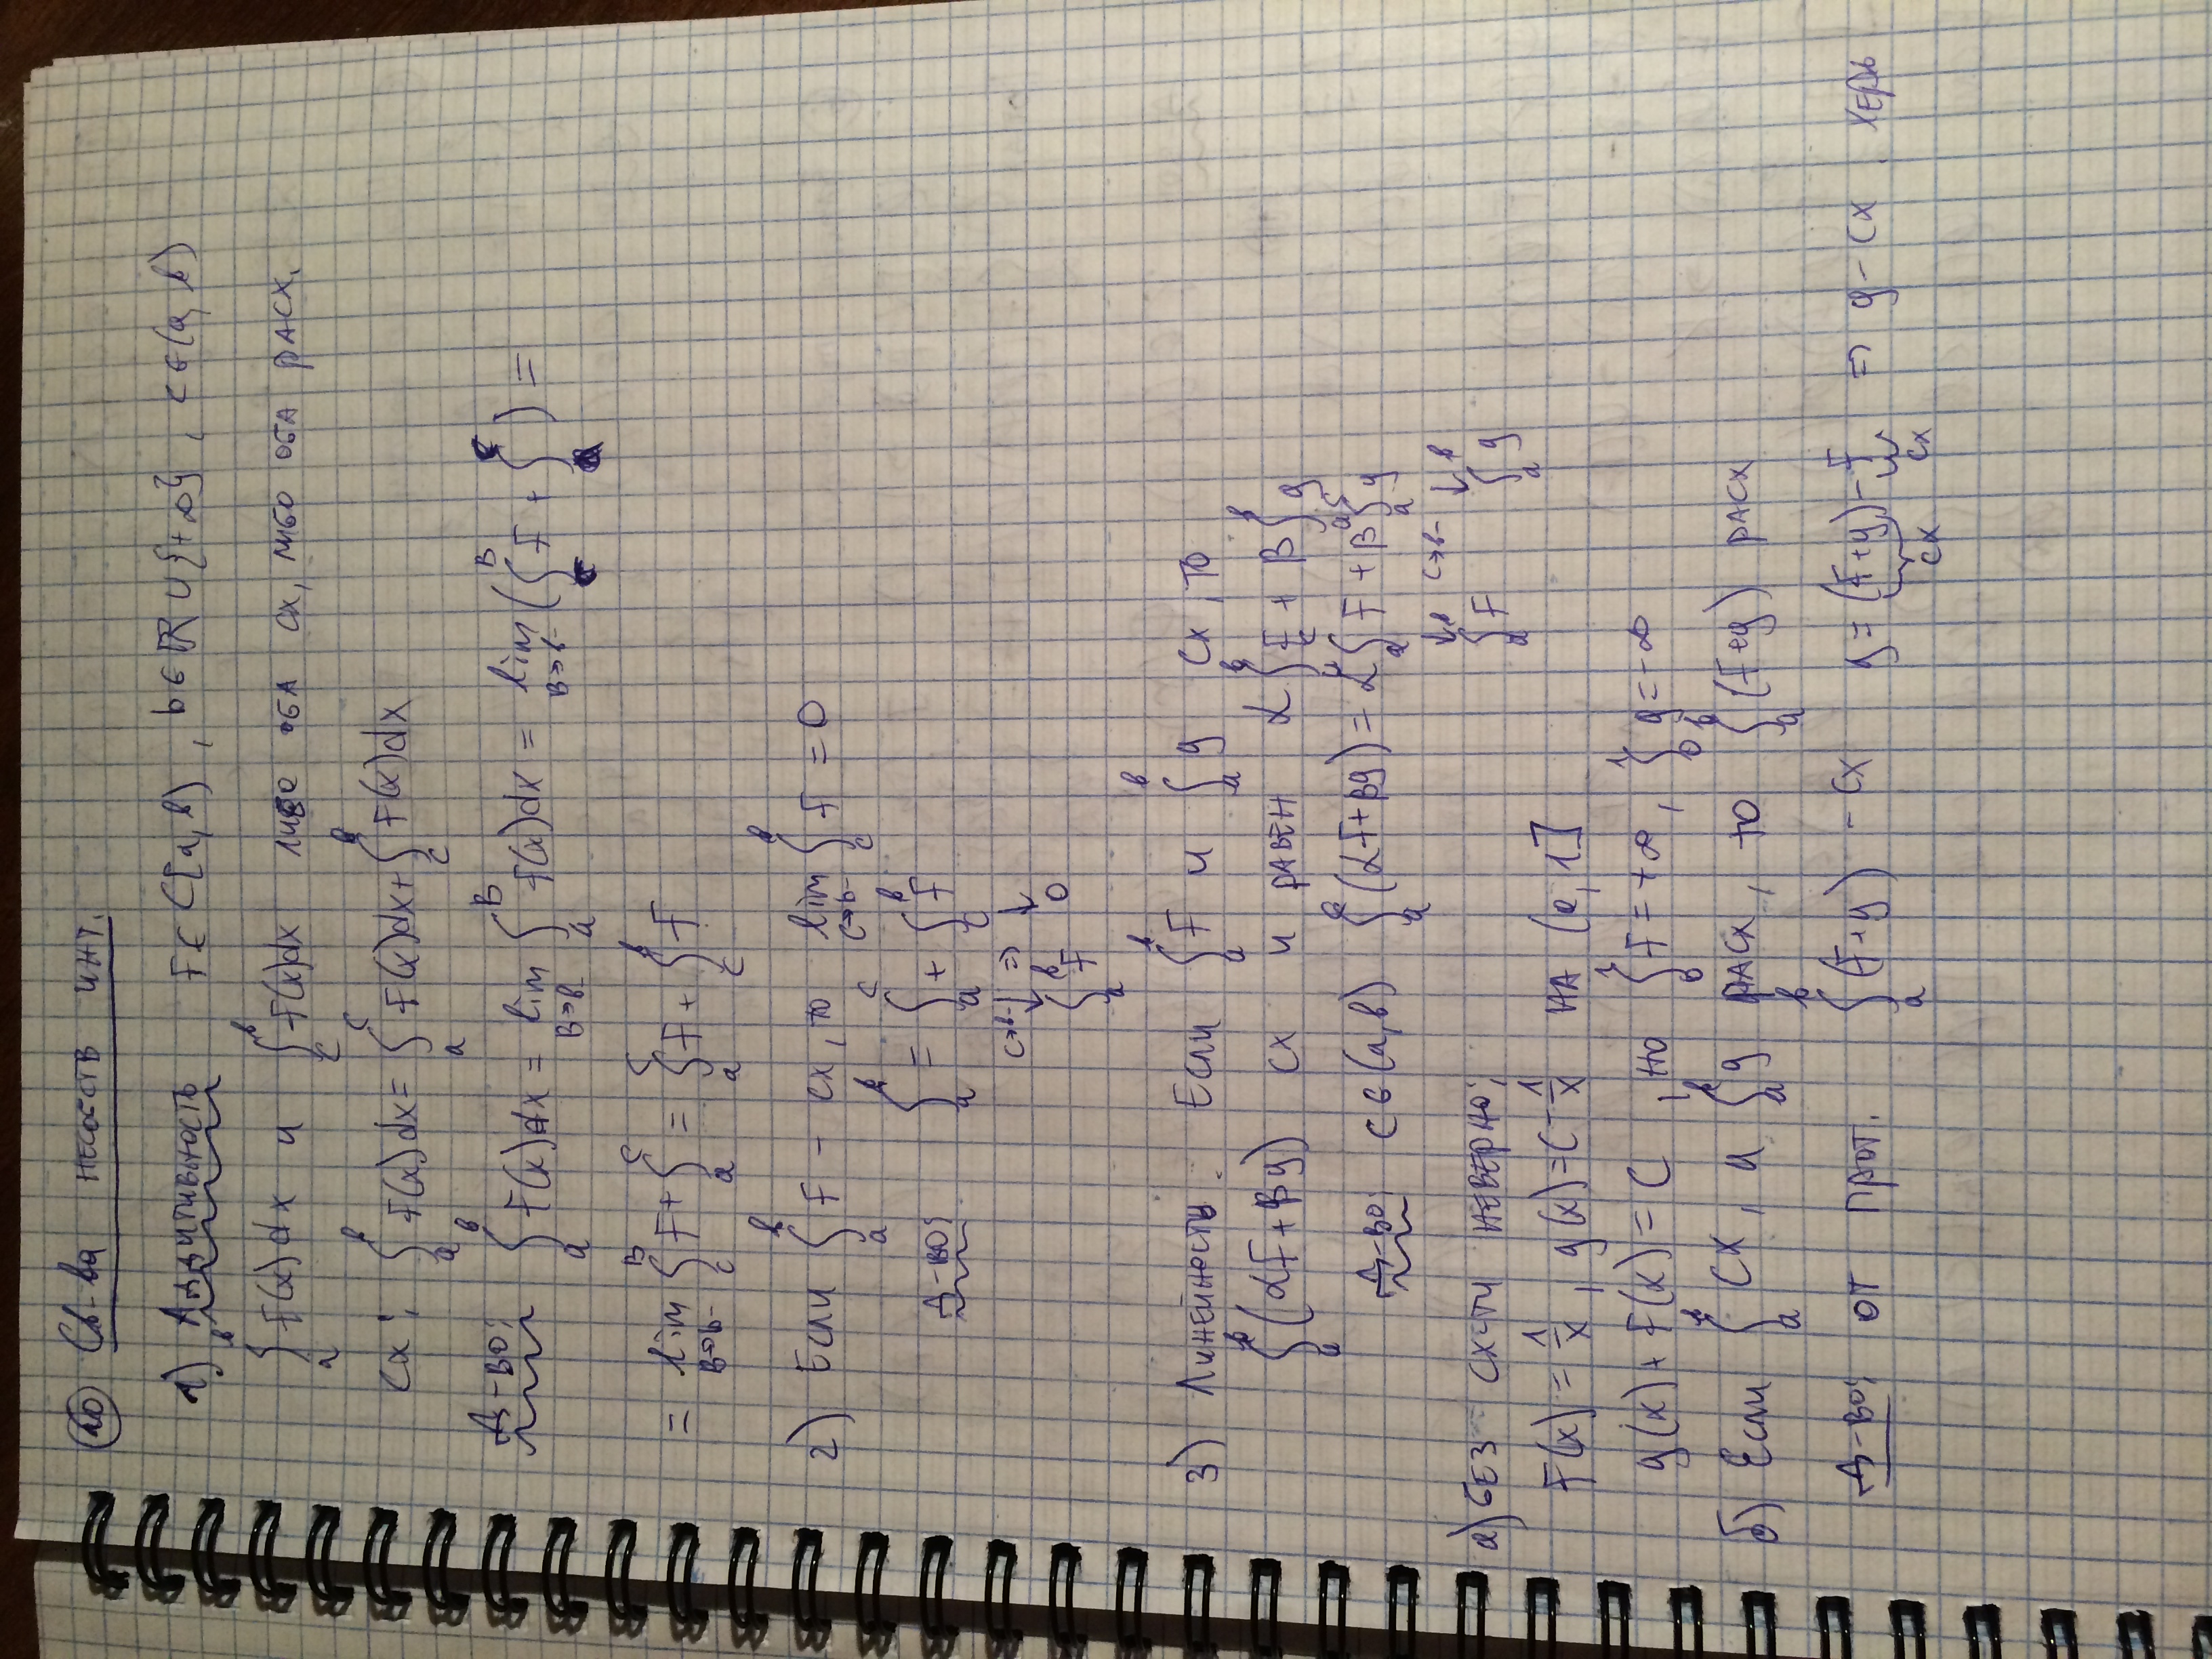 20 Св-ва несобств инт.
1) Аддитивность F ∈ C[a, b) , b ∈ ℝ ∪ {+∞} , c ∈ (a, b)
∫_a^b F(x) dx и ∫_c^b F(x)dx либо оба сх, либо оба расх.
сх: ∫_a^b F(x)dx = ∫_a^c F(x)dx + ∫_c^b F(x)dx
Д-во: ∫_a^b F(x)dx = lim_{B→b-} ∫_a^B F(x)dx = lim_{B→b-} (∫_c^B F + ∫_a^c ) =
= lim_{B→b-} ∫_c^B F + ∫_a^c = ∫_a^c F + ∫_c^b F
2) Если ∫_a^b F - сх, то lim_{c→b-} ∫_c^b F = 0
Д-во: ∫_a^b = ∫_a^c + ∫_c^b F
c→b- ↓ => ↓
∫_a^b F 0
3) Линейность. Если ∫_a^b F и ∫_a^b g сх, то
∫_a^b (αF + βg) сх и равен α∫_a^b F + β∫_a^b g
Д-во: c ∈ (a, b) ∫_a^c (αF + βg) = α∫_a^c F + β∫_a^c g
↓ c→b- ↓
∫_a^b F ∫_a^b g
а) без сх-ти неверно:
F(x) = 1/x , g(x) = C - 1/x на (0, 1]
g(x) + F(x) = C , но ∫_0^1 F = +∞, ∫_0^1 g = -∞
б) Если ∫_a^b сх, и ∫_a^b g расх, то ∫_a^b (F+g) расх
Д-во: от прот. ∫_a^b (F+g) - сх g = (F+g) - F => g - сх . херь
сх сх